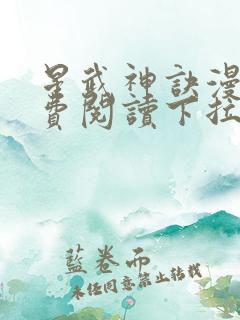 星武神訣漫
費閱讀下拉
藍卷而
未任同意禁止轉載